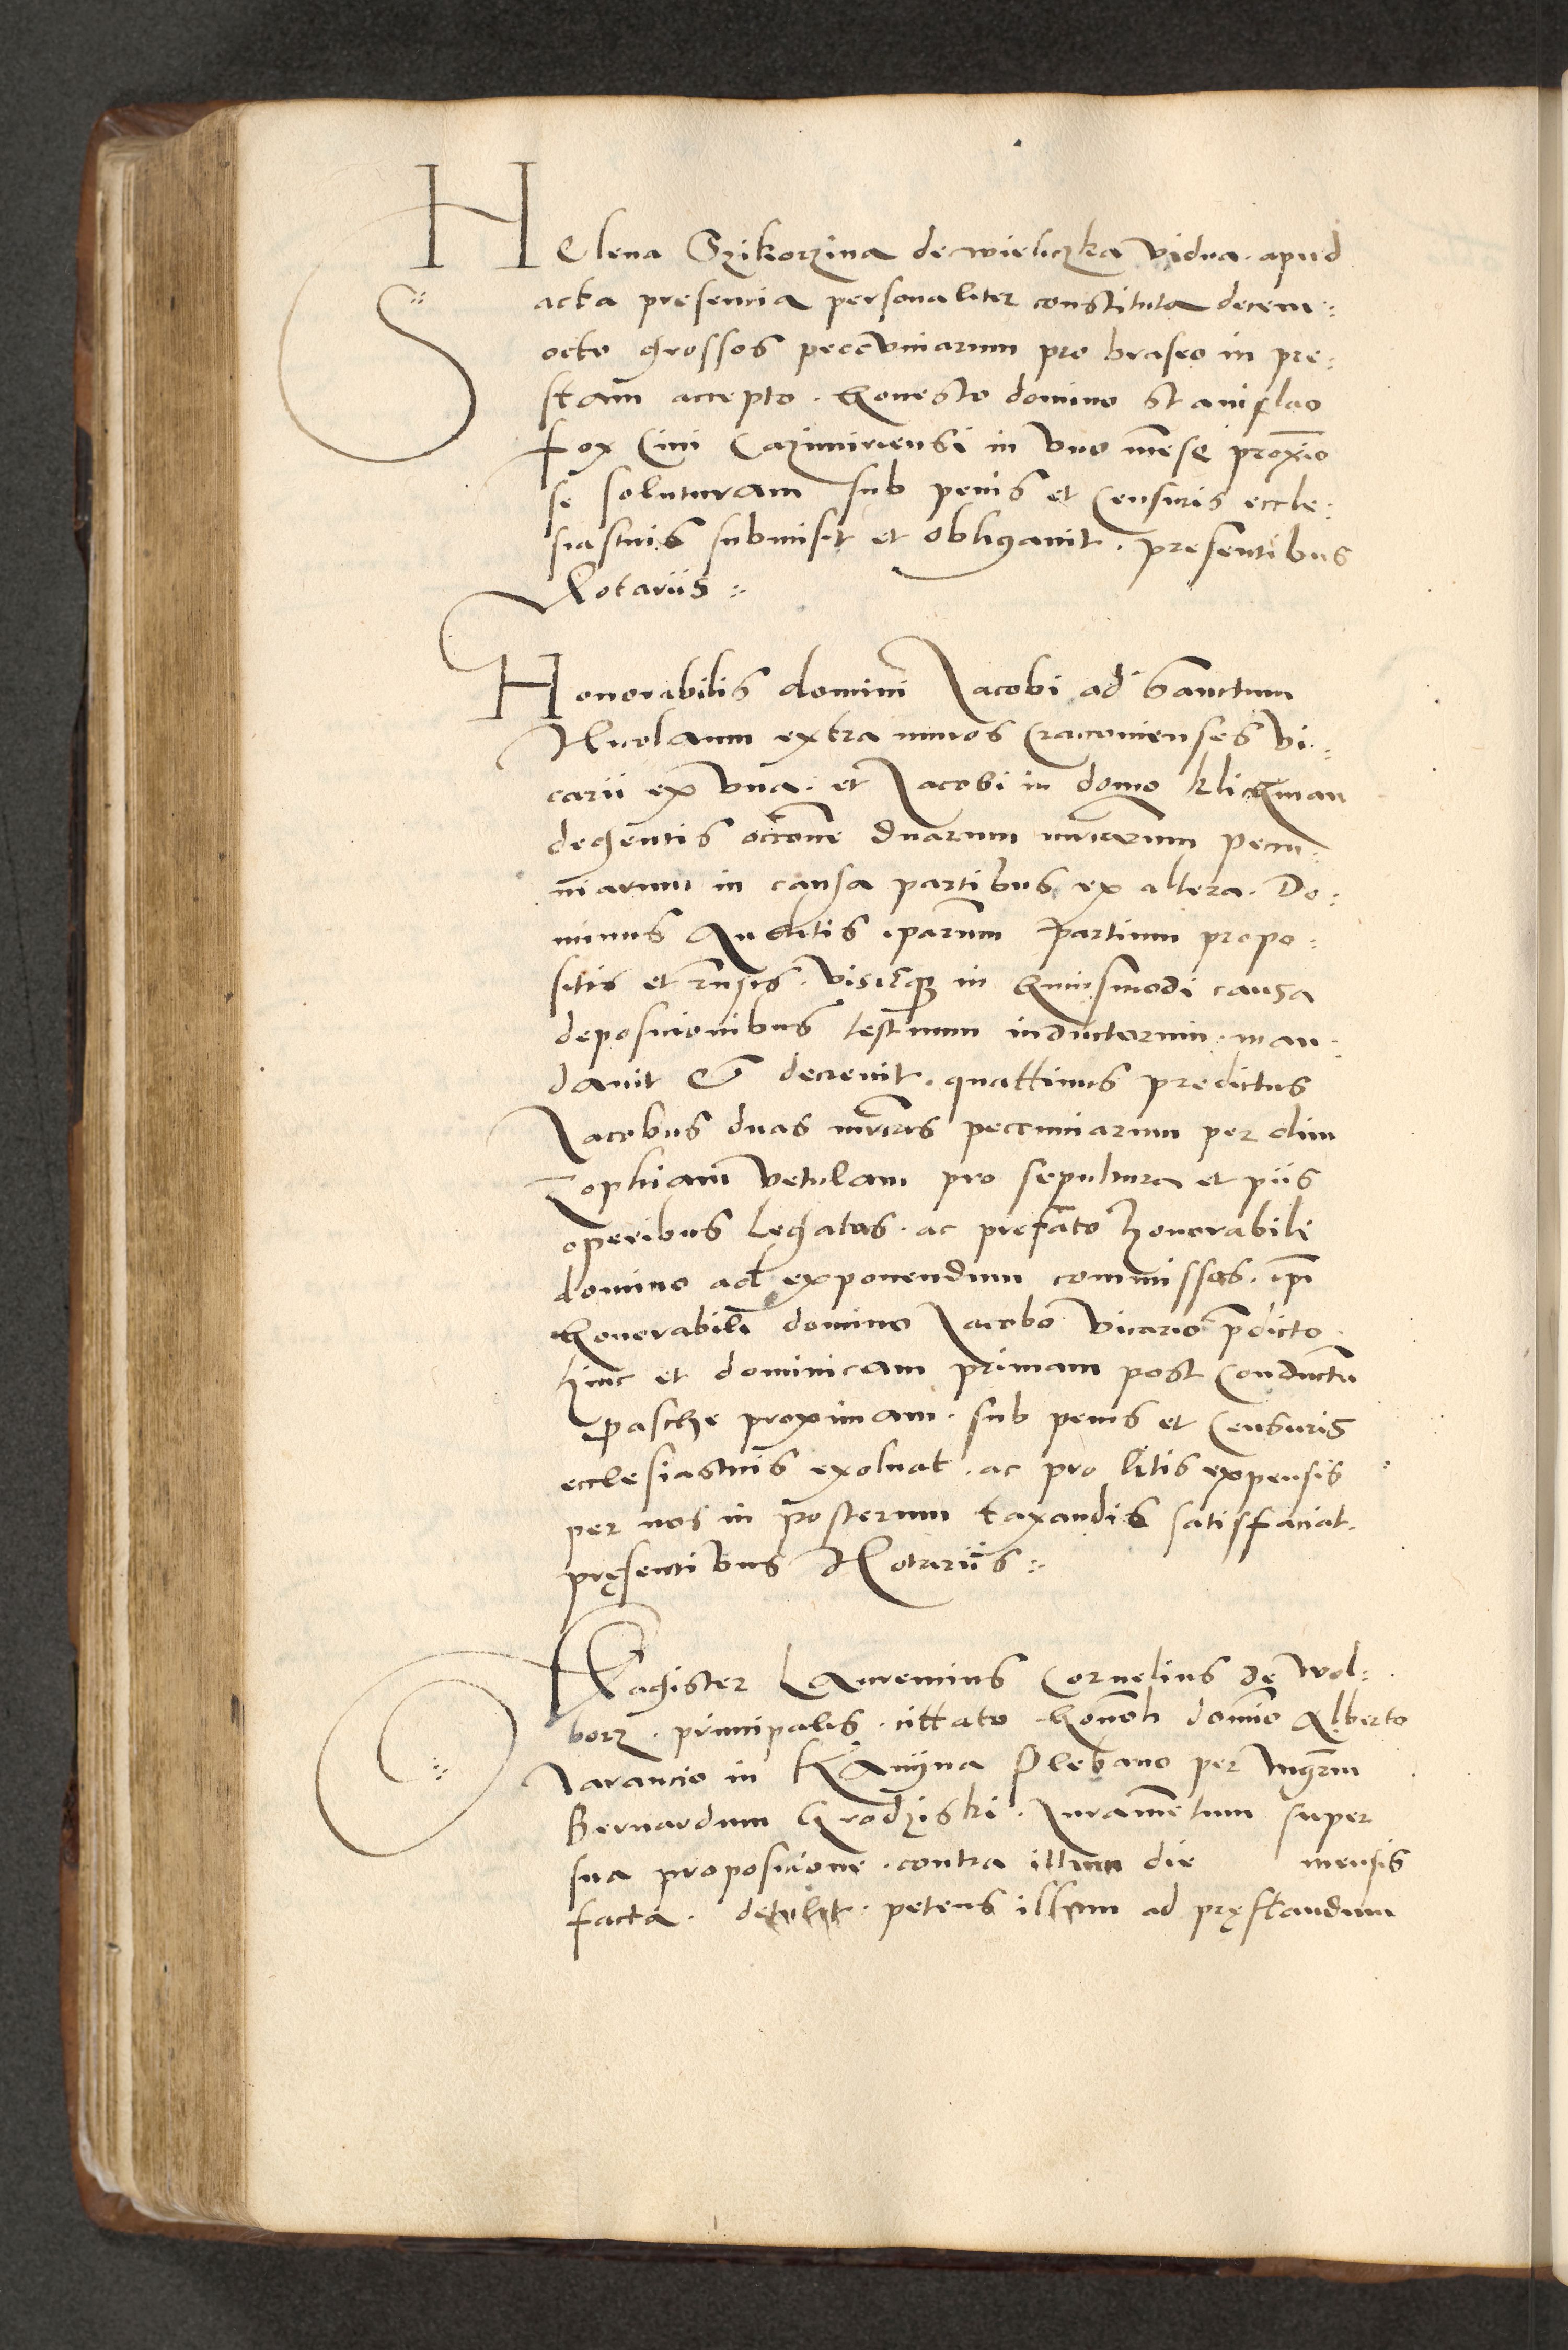 HElena Szikorzina de wieliczka vidua. apud
acta presencia personaliter constituta decem:
octo grossos peccuniarum pro braseo in pre:
stam accepto. honesto domino Stanislao
fox Civi Cazimiriensi in vno mense proximo
se soluturam sub penis et Censuris eccle:
siasticis submisit et obligauit. presentibus
Notariis:
Honorabilis domini Jacobi ad Sanctum
Nicolaum extra muros Cracouienses vi:
carii ex vna. et Jacobi in domo klichman
degentis occone duarum mrcarum pecu:
niarum in causa partibus ex altera. Do:
minus Auditis iparum partium propo:
sitis et rnsis. visisque in huiusmodi causa
deposicionibus testium inductorum. man:
dauit & decreuit. quattinus predictus
Jacobus duas mrcas peccuniarum per olim
Zophiam vetulam pro sepultura et piis
operibus legatas. ac prefato honorabili
domino ad exponendum commissas. ipi
honorabili domino Jacobo vicario pdicto
hinc et dominicam primam post Conductu
Pasche proximam. sub penis et Censuris
ecclesiasticis exoluat. ac pro litis expensis
per nos in posterum taxandis satisfaciat.
pręsentibus Notariis:
Magister Laurencius Cornelius de wol:
borz. principalis. cittato honoli domino Alberto
Jarancio in Kanyna Plebano per mgrm
Bernardum Grodziski. Juramentum super
sua proposicione. contra illum die mensis
facta. detulit. petens illum ad pręstandum